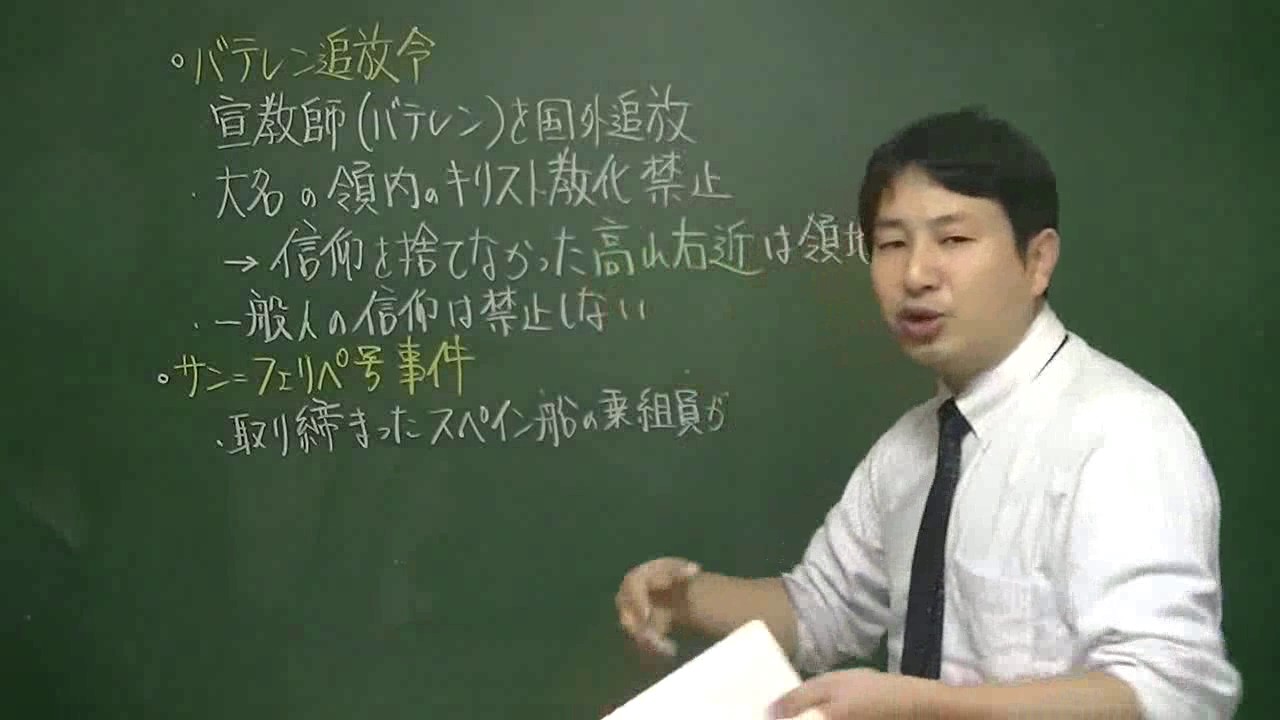 バテレン追放令
宣教師(バテレン)を国外追放
・大名の領内のキリスト教化禁止
→信仰を捨てなかった高山右近は領地
・一般人の信仰は禁止しない
サン=フェリペ号事件
・取り締まったスペイン船の乗組員が